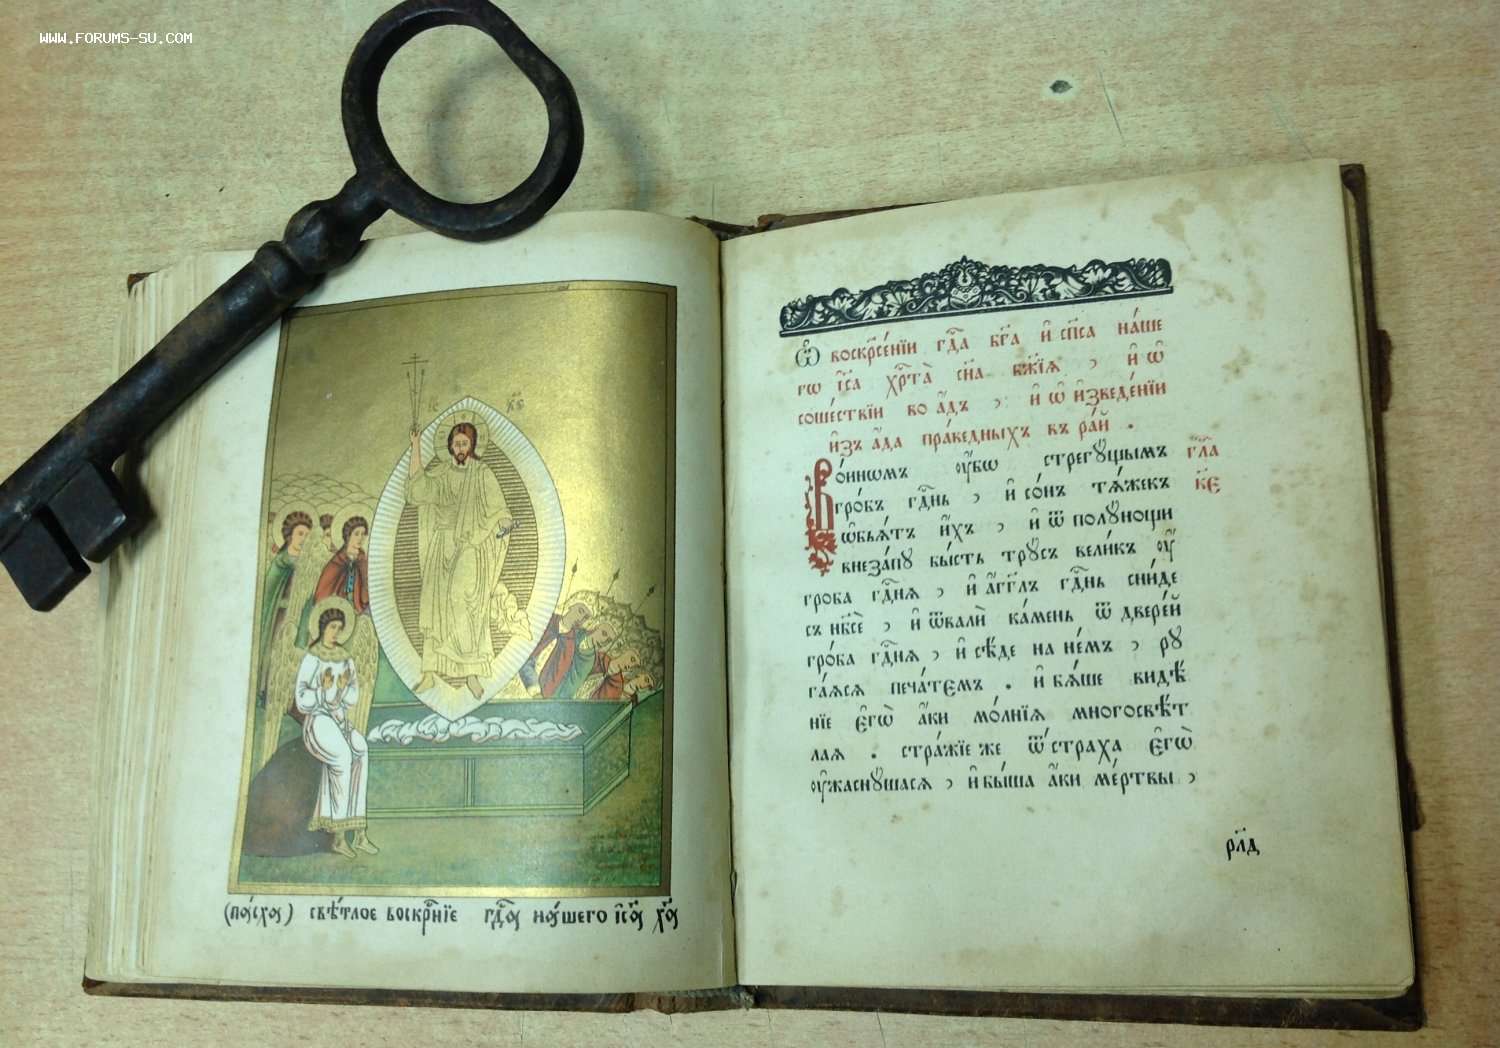 WWW.FORUMS-SU.COM
(па́сха) свѣ́тлое воскрⷭ҇нїе гдⷭ҇а на́шего і҆сⷭ҇а хрⷭ҇та
Ѽ воскрⷭ҇се́нїи гдⷭ҇а бг҃а и҆ сп҃са на́ше
гѡ і҆с҃а хрⷭ҇та̀ сн҃а бж҃їѧ , и҆ ѡ҆
соше́ствїи во а҆́дъ , и҆ ѡ҆ и҆зведе́нїи
и҆зъ а҆́да пра́ведныхъ въ ра́й .
Во́инѡмъ ᲂу҆́бѡ стрегꙋ́щымъ
гро́бъ гдⷭ҇нь , и҆ со́нъ тѧ́жекъ
ѡ҆бьѧ́тъ и҆̀хъ , и҆ ѿ полꙋнощи
внеза́пꙋ бы́сть трꙋ́съ вели́къ ᲂу҆
гроба гдⷭ҇нѧ , и҆ а҆́гг҃лъ гдⷭ҇нь сни́де
съ нб҃сѐ , и҆ ѿвалѝ ка́мень ѿ двере́й
гро́ба гдⷭ҇нѧ , и҆ сѣ́де на не́мъ , рꙋ
га́ѧсѧ печа́темъ . и҆ бѧ́ше видѣ́
нїе є҆гѡ̀ а҆́ки мо́лнїѧ многосвѣ́т
лаѧ . стра́жїе же ѿ стра́ха є҆гѡ̀
ᲂу҆жаснꙋ́шасѧ , и҆ бы́ша а҆́ки ме́ртвы ,
гла҃
к҃є
рл҃д